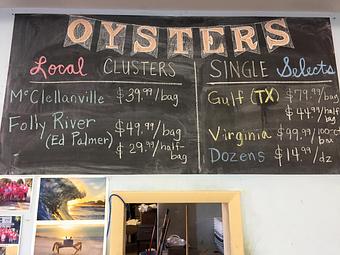 OYSTERS
Local CLUSTERS
McClellanville $39.99/bag
Folly River $49.99/bag
(Ed Palmer) $29.99/half-bag
SINGLE Selects
Gulf (TX) $79.99/bag
$44.99/half bag
Virginia $99.99/100-ct
Dozens $14.99/dz